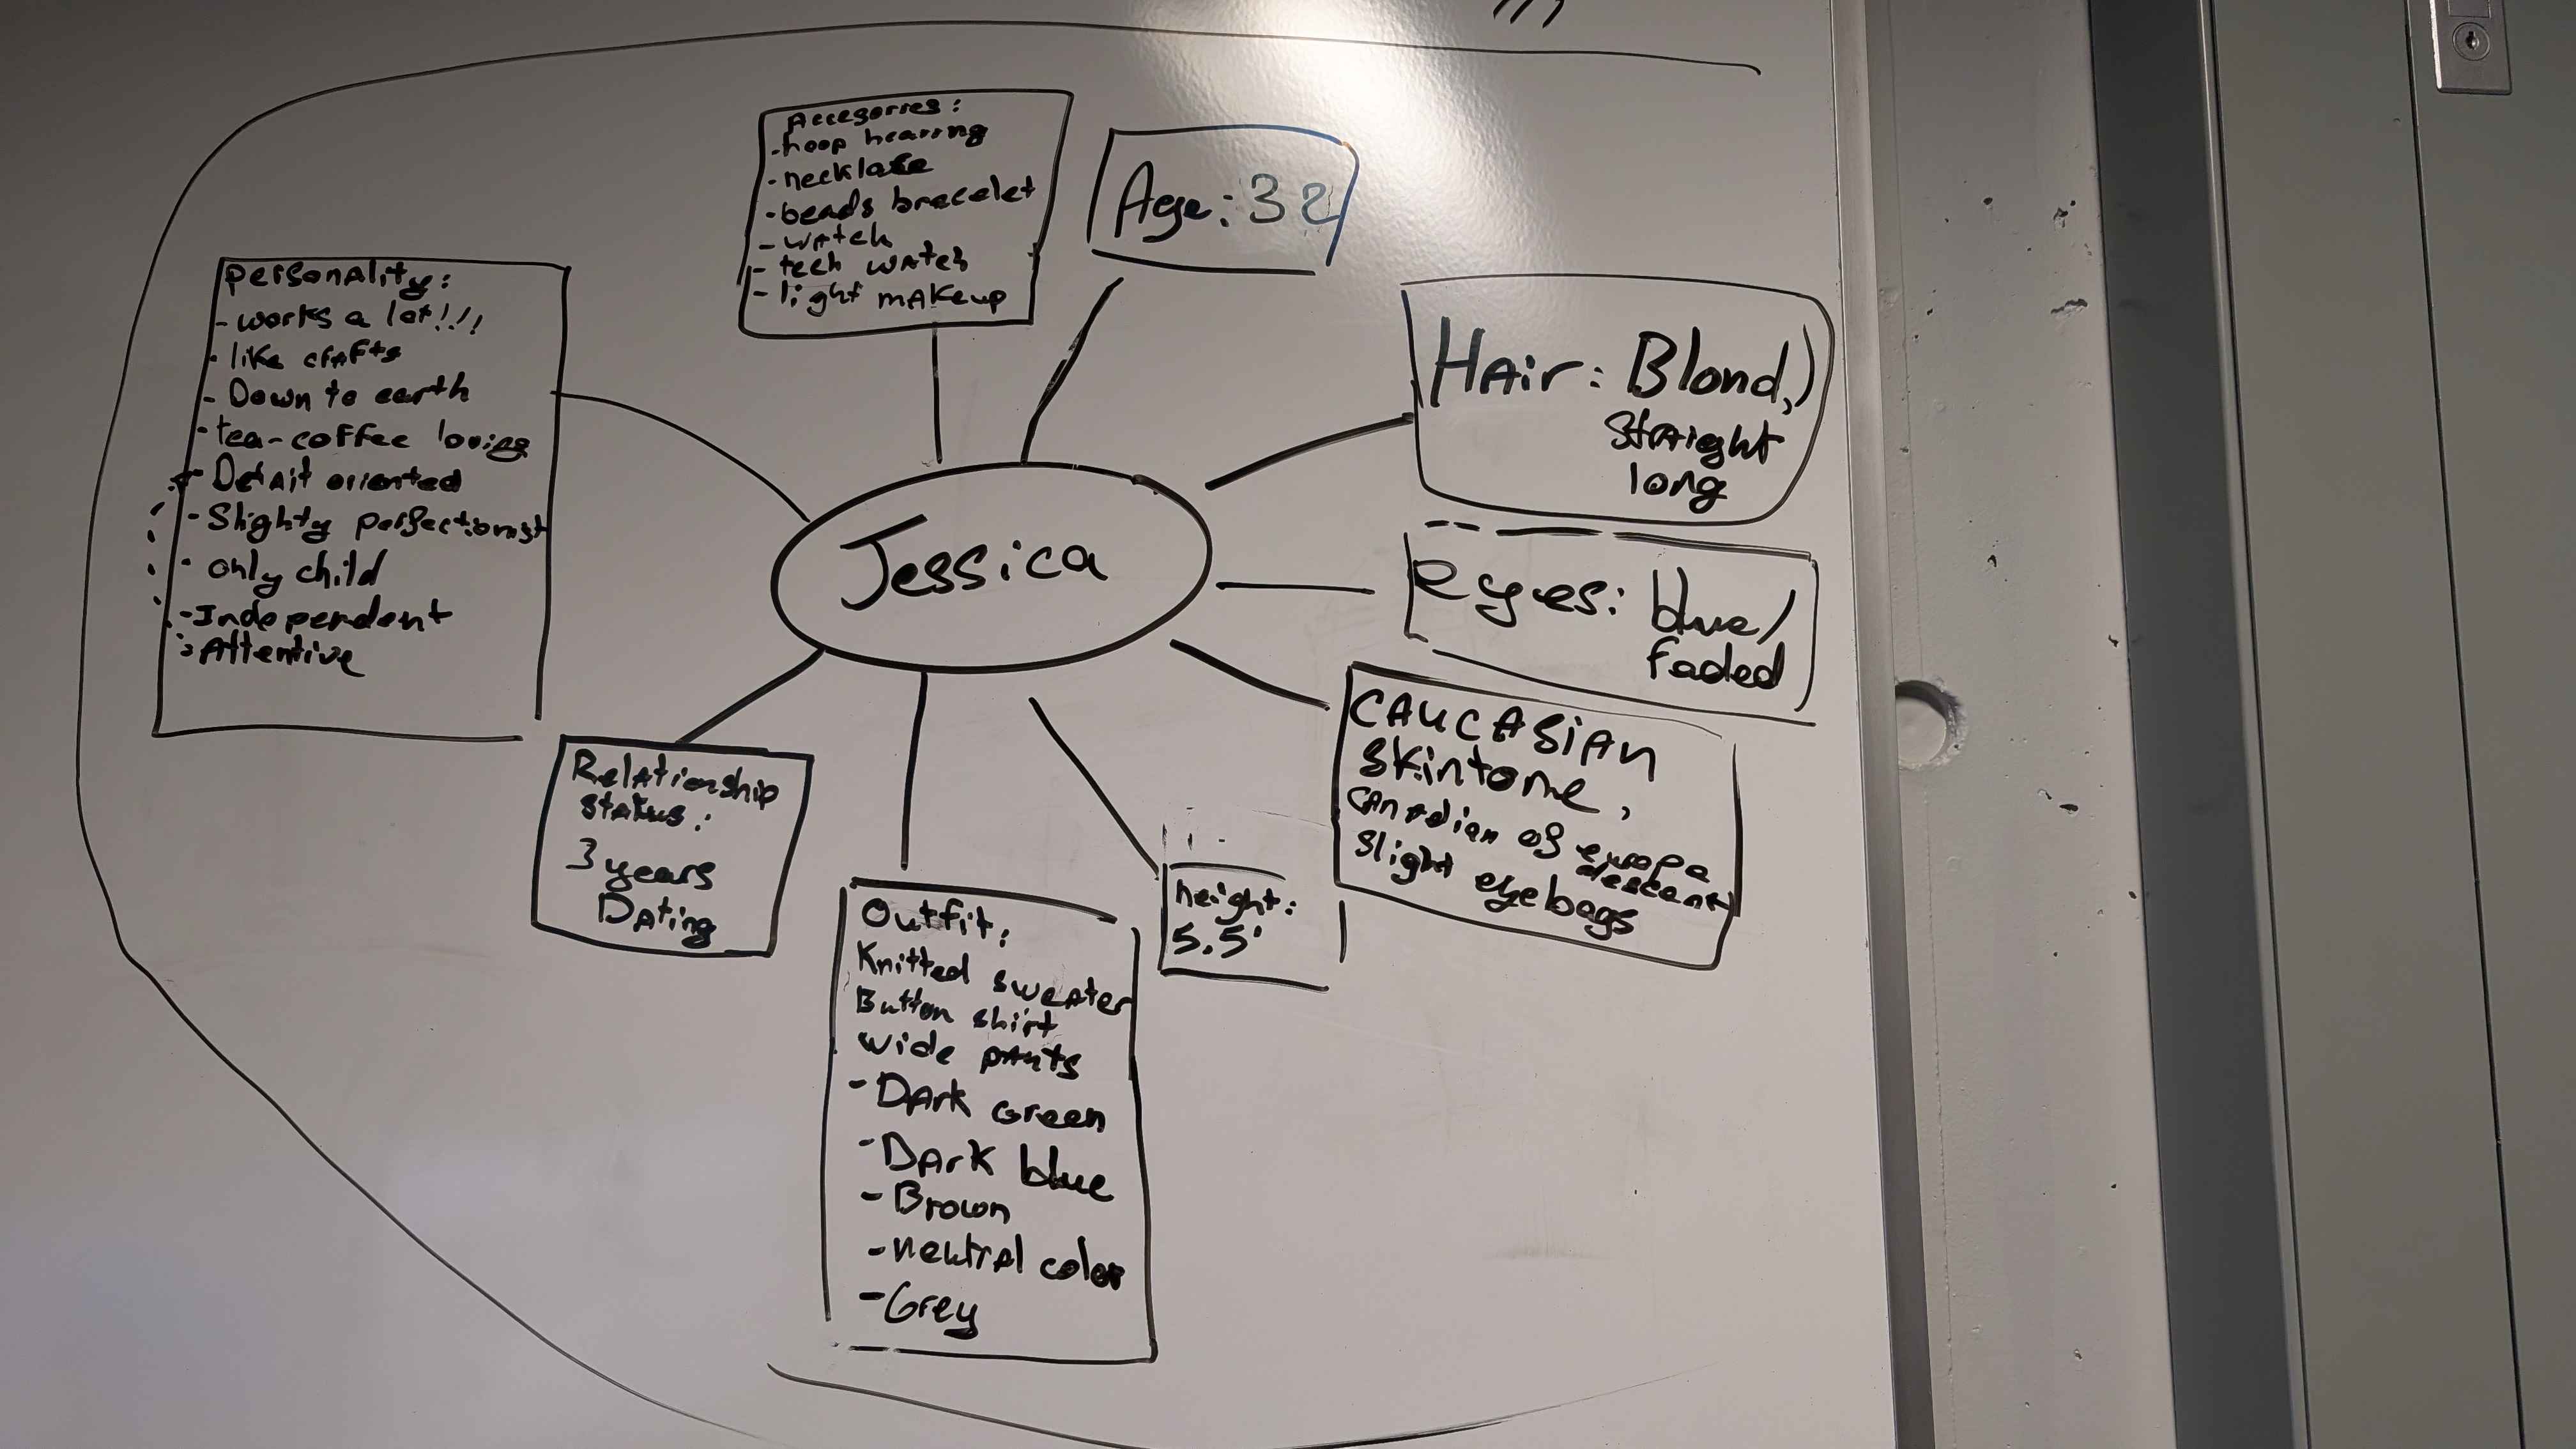 Accesorres:
-hoop hearring
-necklace
-beads bracelet
-watch
-tech watch
-light makeup
Age: 32
personality:
-works a lot!!!
-like crafts
-Down to earth
-tea-coffee loving
-Detail oriented
-Slighty perfectionist
-only child
-Independent
-Attentive
Hair: Blond,
straight
long
eyes: blue/
faded
Jessica
CAUCASIAN
skintone,
Canadian of europe
descent
slight eyebags
Relationship
status:
3 years
Dating
height:
5.5'
Outfit:
Knitted sweater
Button shirt
wide pants
-Dark Green
-Dark blue
-Brown
-neutral color
-Grey